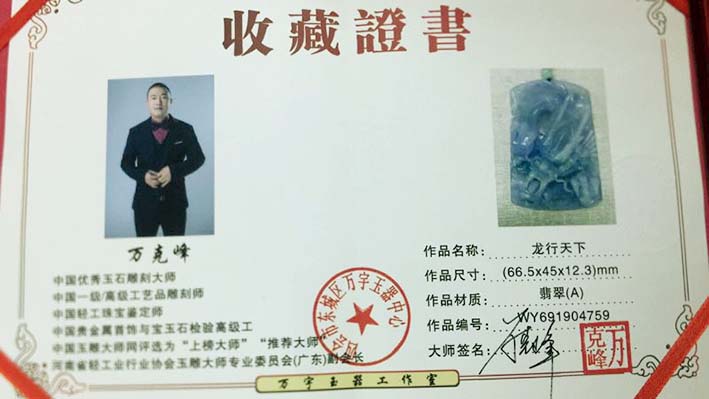 收藏證書
万克峰
中国优秀玉石雕刻大师
中国一级/高级工艺品雕刻师
中国轻工珠宝鉴定师
中国贵金属首饰与宝玉石检验高级工
中国玉雕大师网评选为“上榜大师”“推荐大师”
河南省轻工业行业协会玉雕大师专业委员会(广东)副会长
作品名称: 龙行天下
作品尺寸: (66.5x45x12.3)mm
作品材质: 翡翠(A)
作品编号: WY691904759
大师签名:
会市东城区万宇玉器中心
克峰
万宇玉器工作室